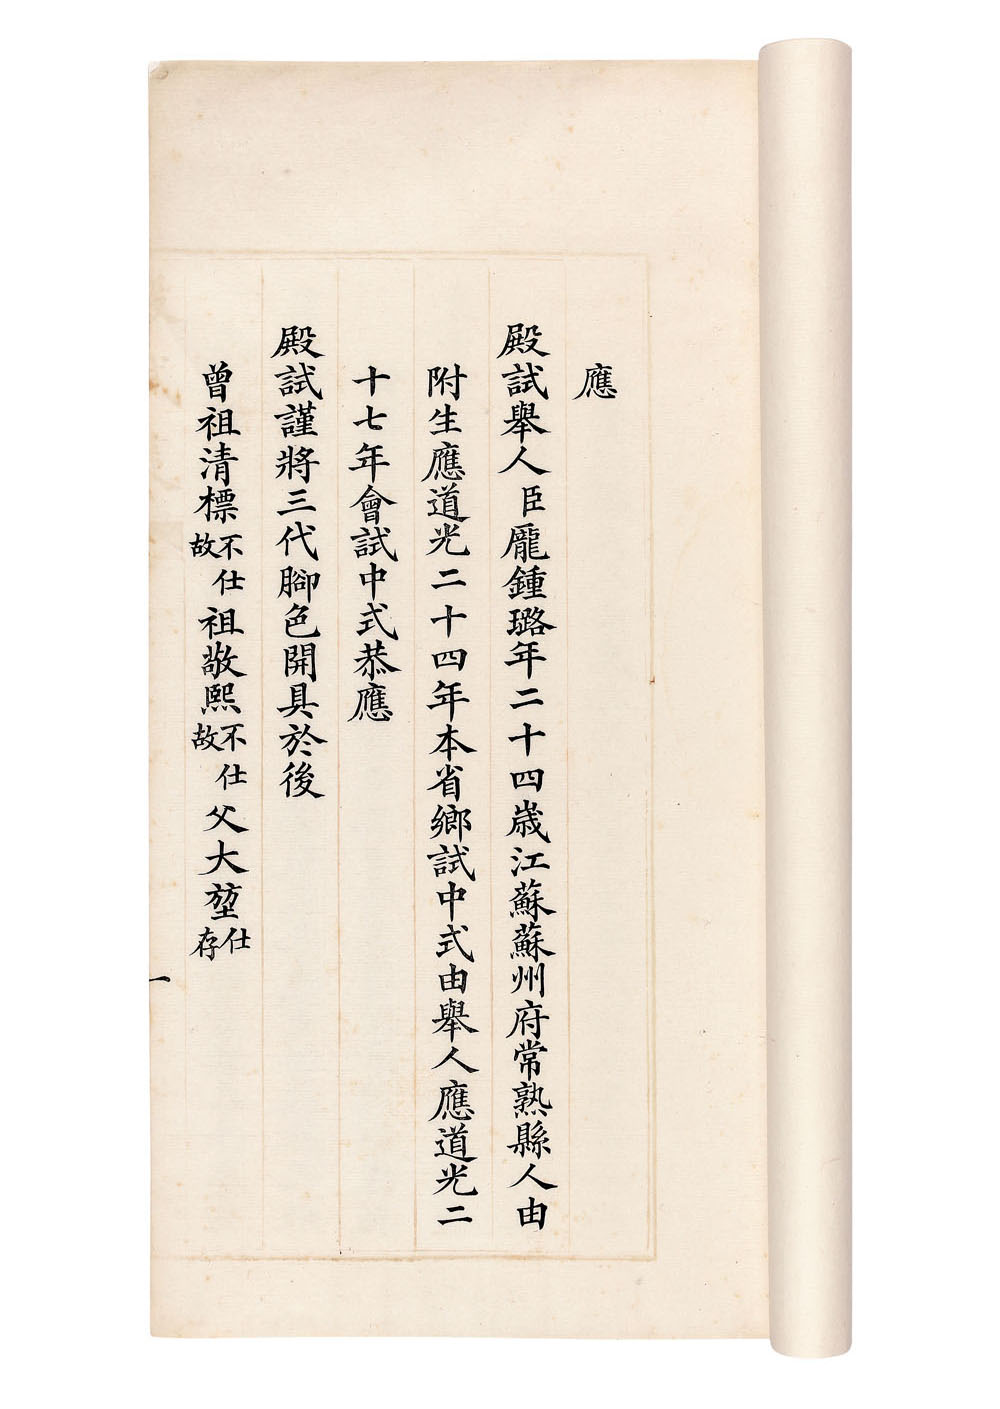 應
殿試舉人臣龐鍾璐年二十四歲江蘇蘇州府常熟縣人由
附生應道光二十四年本省鄉試中式由舉人應道光二
十七年會試中式恭應
殿試謹將三代腳色開具於後
曾祖清標不仕故祖敬熙不仕故父大堃仕存